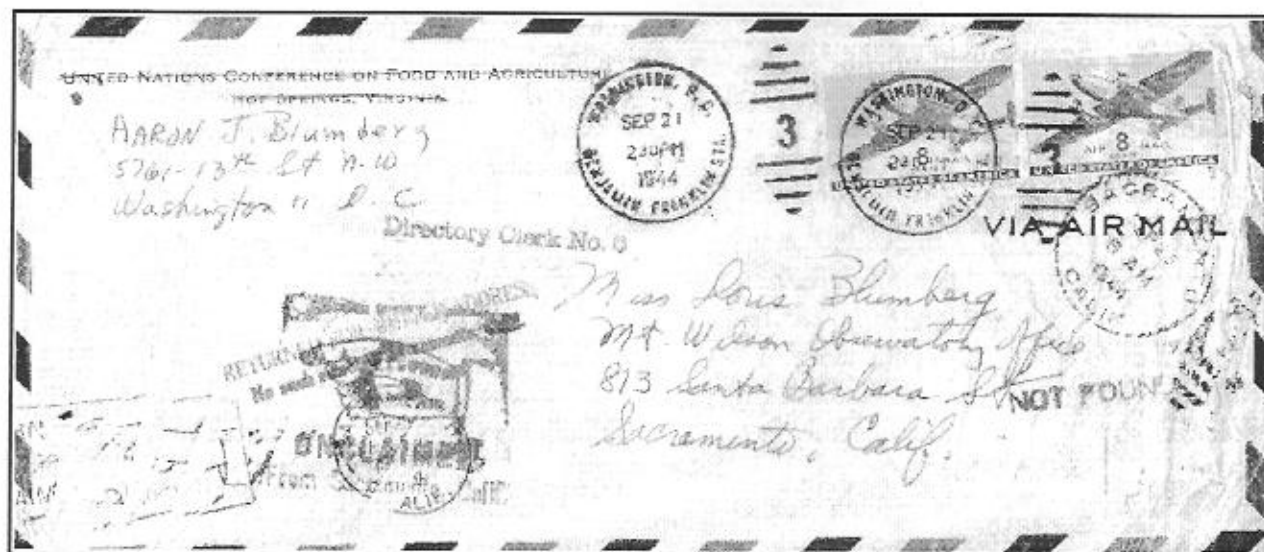 UNITED NATIONS CONFERENCE ON FOOD AND AGRICULTURE
HOT SPRINGS, VIRGINIA
AARON J. Blumberg
5761-13th St N.W
Washington 11 D.C
WASHINGTON, D.C.
SEP 21
2 30 PM
1944
BENJAMIN FRANKLIN STA.
3
WASHINGTON, D.C.
SEP 21
BENJAMIN FRANKLIN
8
UNITED STATES OF AMERICA
3
AIR 8 MAIL
UNITED STATES OF AMERICA
VIA AIR MAIL
SACRAMENTO
AM
1944
CALIF
Directory Clerk No. 6
Miss Doris Blumberg
Mt. Wilson Observatory Office
813 Santa Barbara St
Sacramento, Calif.
NOT FOUND
RETURN
No such
UNCLAIMED
From
CALIF